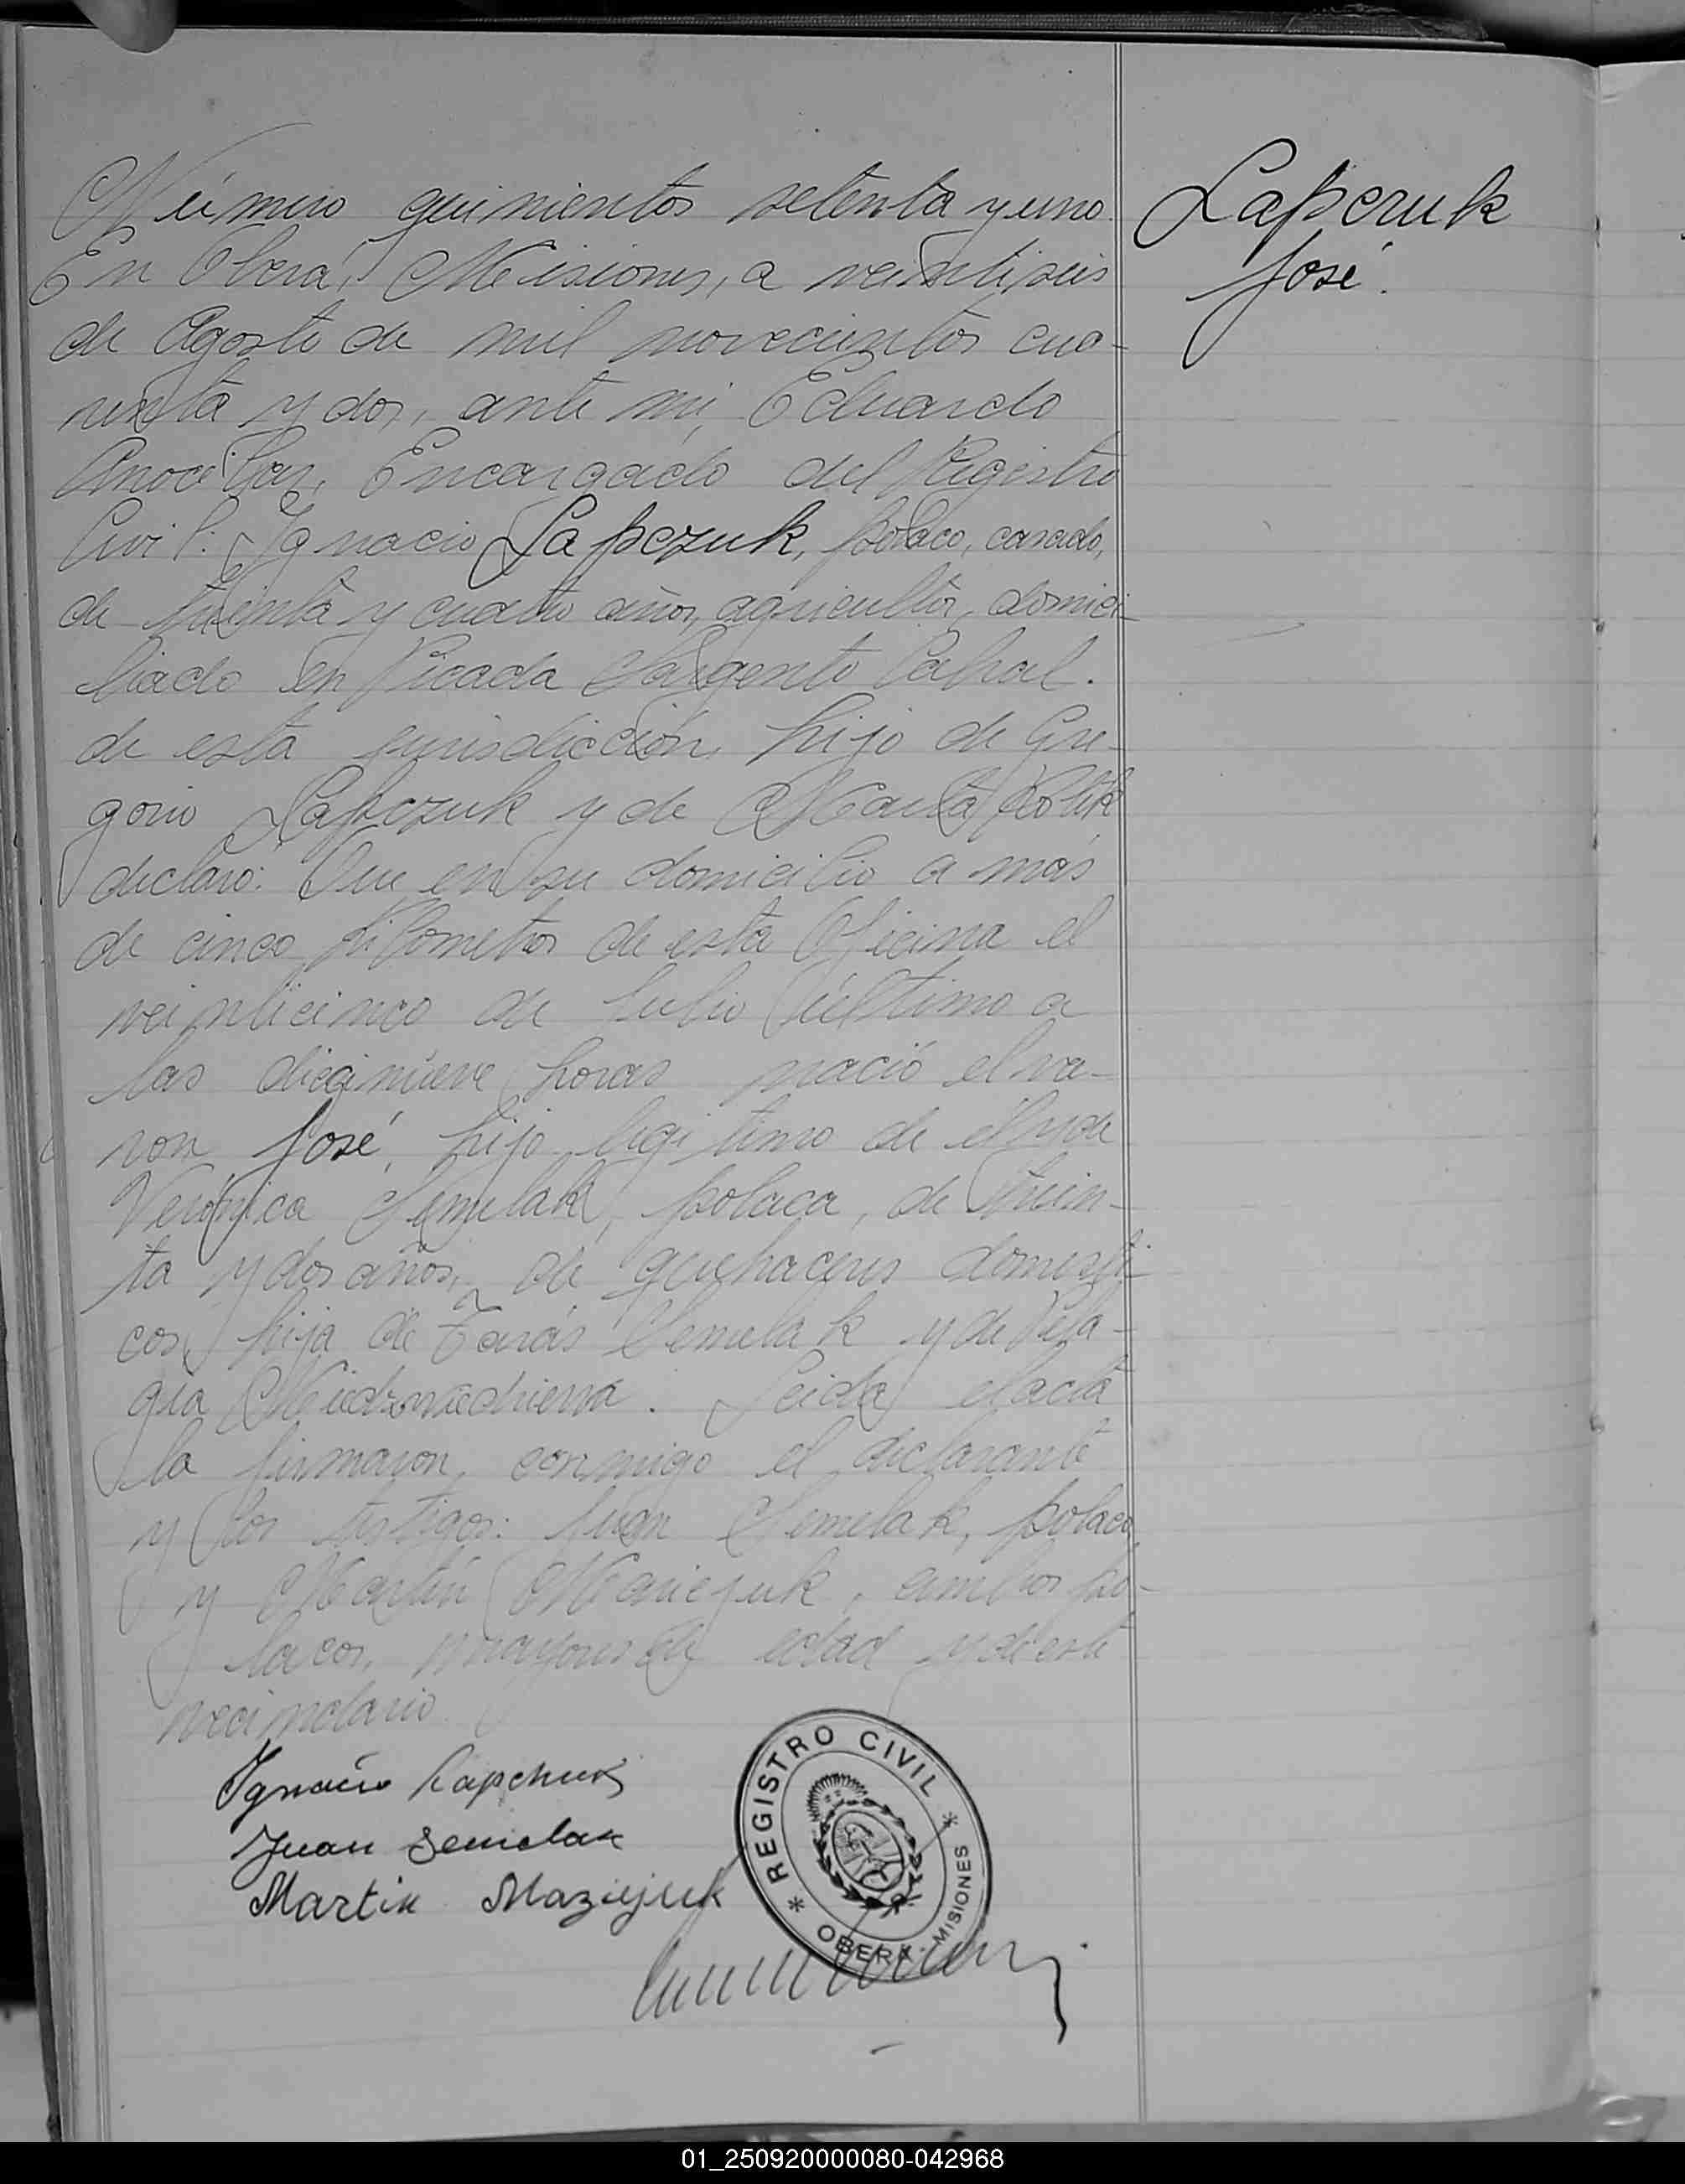 Número quinientos setenta y uno
En Oberá, Misiones, a veintiseis
de Agosto de mil novecientos cua-
renta y dos, ante mi, Eduardo
Encargado del Registro
Civil: Ignacio Lapczuk, polaco, casado,
de treinta y cuatro años, agricultor, domici-
liado en Picada Sargento Cabral.
de esta jurisdicción, hijo de Gre-
gorio Lapczuk y de Marta
declaró: Que en su domicilio a más
de cinco kilometros de esta Oficina el
veinticinco de Julio último a
las diecinueve horas nació el va-
ron José, hijo legitimo de él y de
Verónica Semelak, polaca, de trein-
ta y dos años, de quehaceres domesti-
cos, hija de Tarás Semelak y de Pela-
gia. Leida el acta
la firmaron conmigo el declarante
y los testigos: Juan Semelak, polaco
y Martin ambos po-
lacos, mayores de edad y de este
vecindario
Lapczuk
José.
Ignacio Lapchuk
Juan Semelak
Martin Maziejuk
* REGISTRO CIVIL *
OBERA - MISIONES
01_250920000080-042968